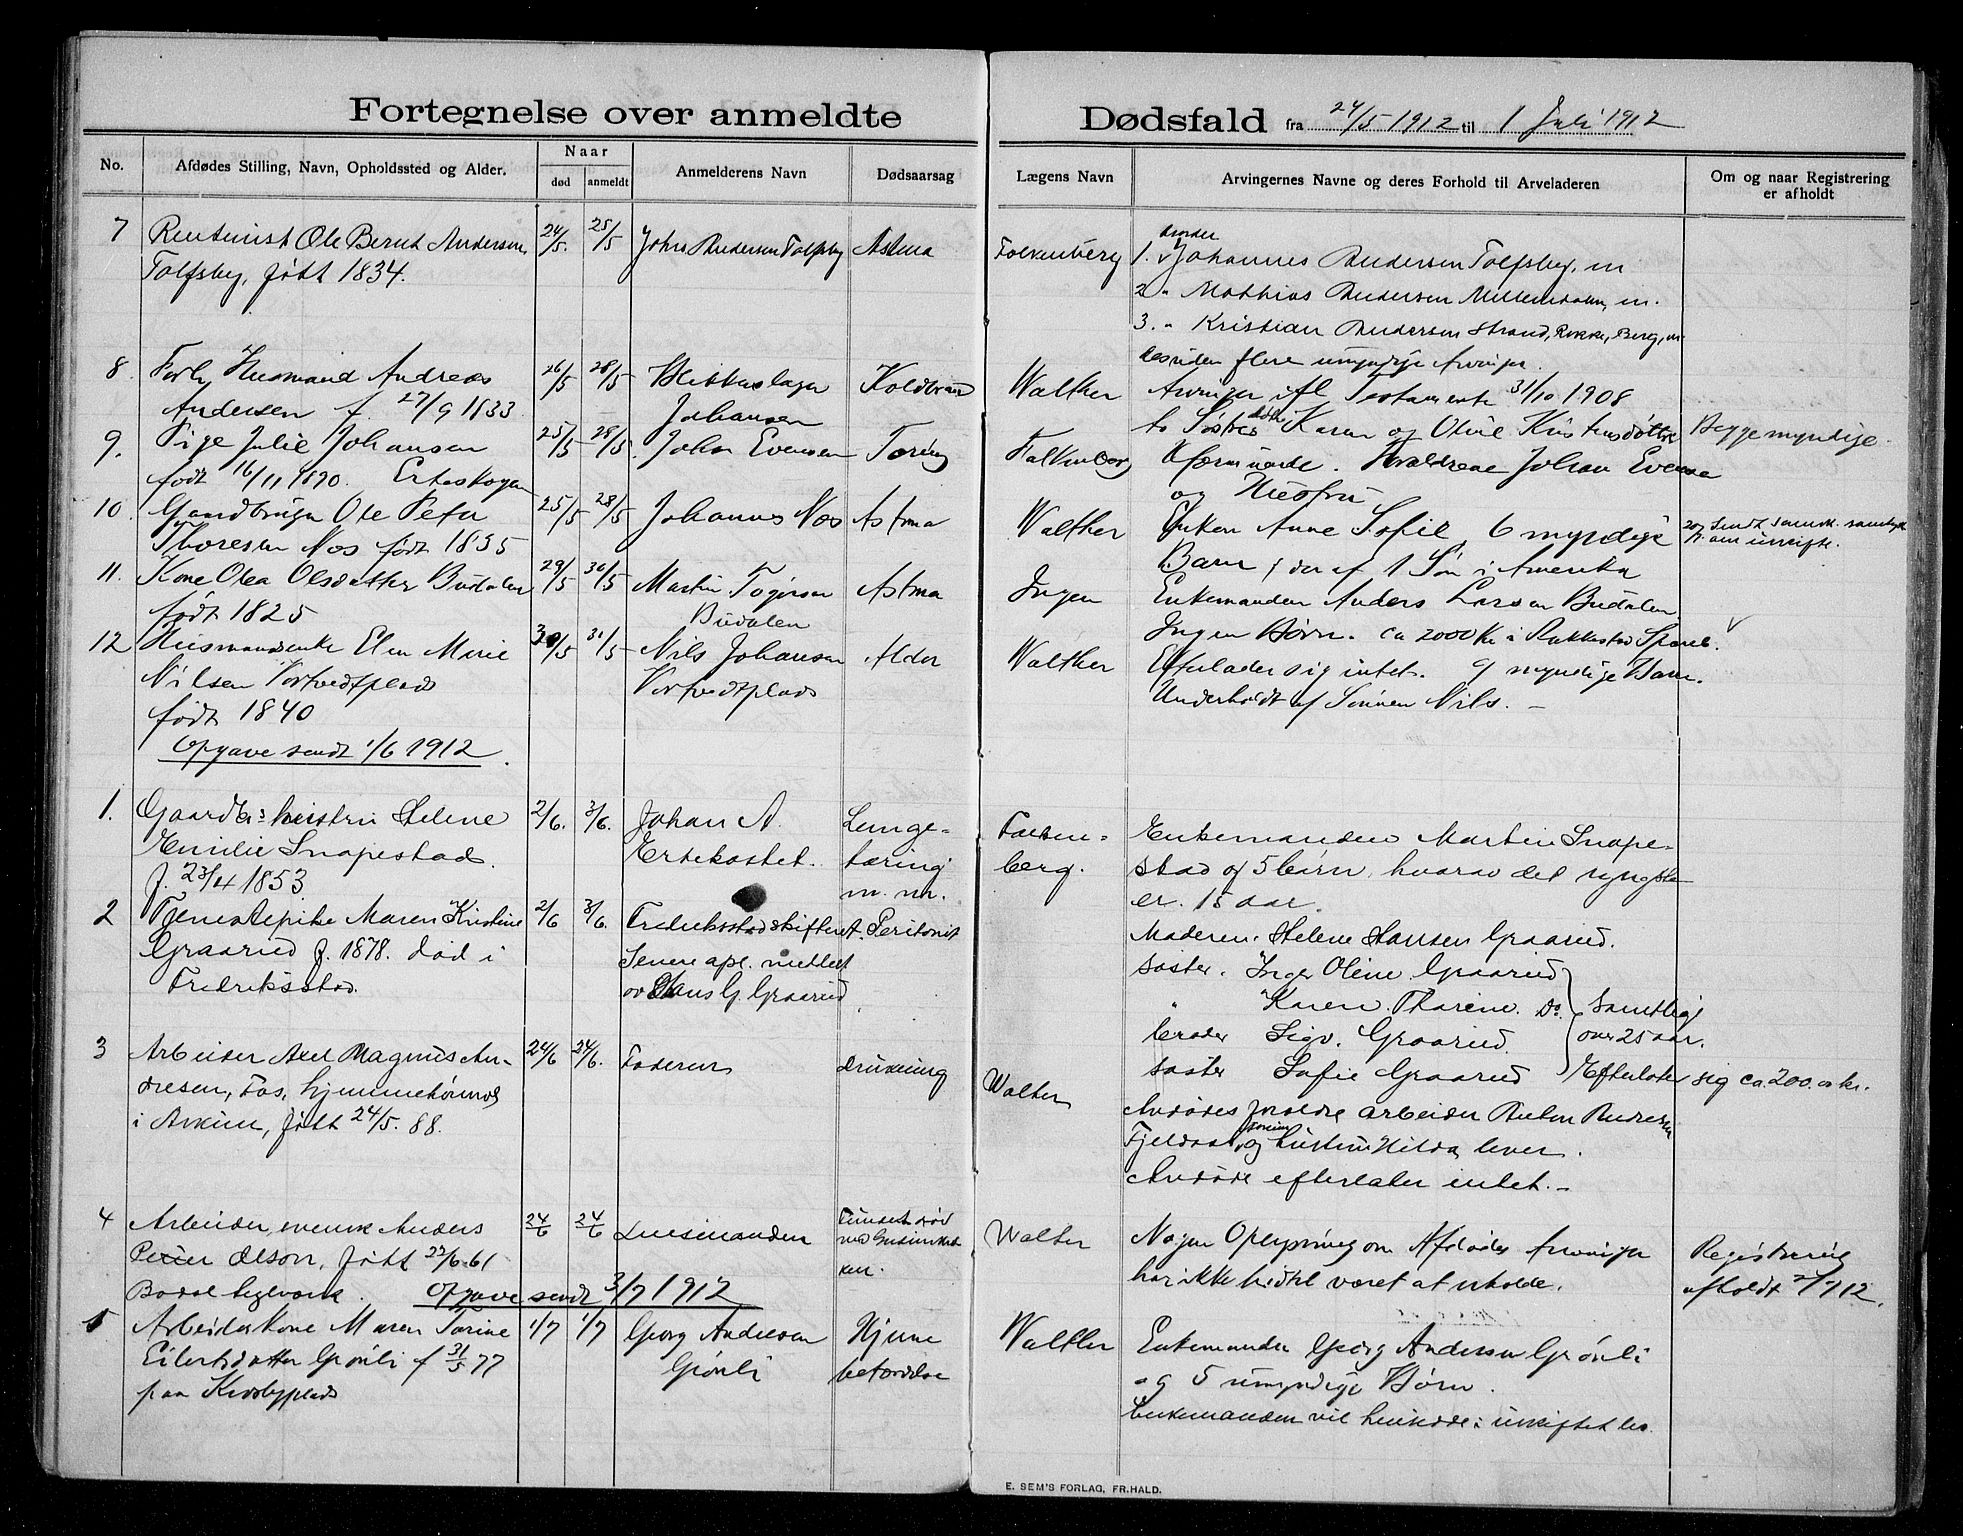 Fortegnelse over anmeldte Dødsfald fra 24/5 1912 til 1 Juli 1912
No.
Afdødes Stilling, Navn, Opholdssted og Alder.
Naar
død
anmeldt
Anmelderens Navn
Dødsaarsag
Lægens Navn
Arvingernes Navne og deres Forhold til Arveladeren
Om og naar Registrering
er afholdt
7 Rentenist Ole Bernt Andersen
Tolfsby, født 1834.
24/5. 25/5
Johs Andersen Tolfsby
Astma
Falkenberg
broder
1. Johannes Andersen Tolfsby, m
2 " Mathias Andersen m.
3. " Kristian Andersen Strand, Rokke, Berg, m
desuden flere umyndige Arvinger.
8. Husmand Andreas
Andersen f. 27/9 1833
26/5 28/5
Johansen
Koldbrand
Walther
Arvinger ifl Testamente 31/10 1908
to Karen og Oline
Begge myndige
9. Pige Julie Johansen
født 16/11 1890.
25/5 28/5
Johan Evensen
Tæring
Falkenberg
Uformuende. Forældrene Johan Evensen
og Hustru
10. Gaardbruger Ole Peter
Thoresen Nos født 1835
25/5 28/5
Johannes Nos
Astma
Walther
Enken Anne Sofie 6 myndige
Børn, deraf 1 Søn i Amerika
11. Kone Olea Olsdatter Budalen
født 1825
29/5 30/5
Martin
Budalen
Astma
Ingen
Enkemanden Anders Larsen Budalen
Ingen Børn. ca 2000 Kr i Rakkestad Spareb. V
12 Husmandsenke Elen Marie
Nilsen Vortvedtplads
født 1840
30/5 31/5
Nils Johansen
Vortvedtplads
Alder
Walther
Efterlader sig intet. 9 myndige Børn.
Underholdt af Sønnen Nils. –
Opgave sendt 1/6 1912.
1. Gaardbr.s hustru Helene
Emilie Snapestad.
f. 23/4 1853
2/6. 3/6.
Johan A.
Ertekastet.
Lunge-
tæring
m. m.
Falken-
berg.
Enkemanden Martin Snape-
stad og 5 børn, hvorav det yngste
er 15 aar.
2 Tjenestepike Maren Kristine
Graarud f. 1878. død i
Fredriksstad.
2/6 3/6.
Fredriksstad skifteret.
Senere meldt
av Hans G. Graarud
Peritonit
Moderen Helene Hansen Graarud.
søster. Inger Oline Graarud
" Karen Tharine Do.
broder Sigv. Graarud.
søster Sofie Graarud
Samtlige
over 25 aar.
Efterlater sig ca. 200.00 kr.
3 Arbeider Axel Magnus An-
dresen, hjemmehørende
i Askim, født 24/5. 88.
24/6 24/6.
Faderen
drukning
Walther
Avdødes foreldre arbeider Anton Andresen
Fjeldaas og hustru Hilda lever.
Avdøde efterlater intet. –
4 Arbeider, svensk Anders
Peter Olson, født 22/6. 61
Bodal teglverk.
24/6 24/6
Lensmanden
Fundet død
Walther
Nogen Oplysning om Afdødes Arvinger
har ikke hidtil været at erholde.
Registrering
afholdt 2/7 12.
Opgave sendt 3/7 1912
5 Arbeiderkone Maren Torine
Eilertsdatter Grønli f 31/5 77
paa
1/7 1/7
Georg Andersen
Grønli
Hjerne
betændelse
Walther
Enkemanden Georg Andersen Grønli
og 5 umyndige Børn.
Enkemanden vil hensidde i uskiftet bo
E. SEM'S FORLAG, FR.HALD.